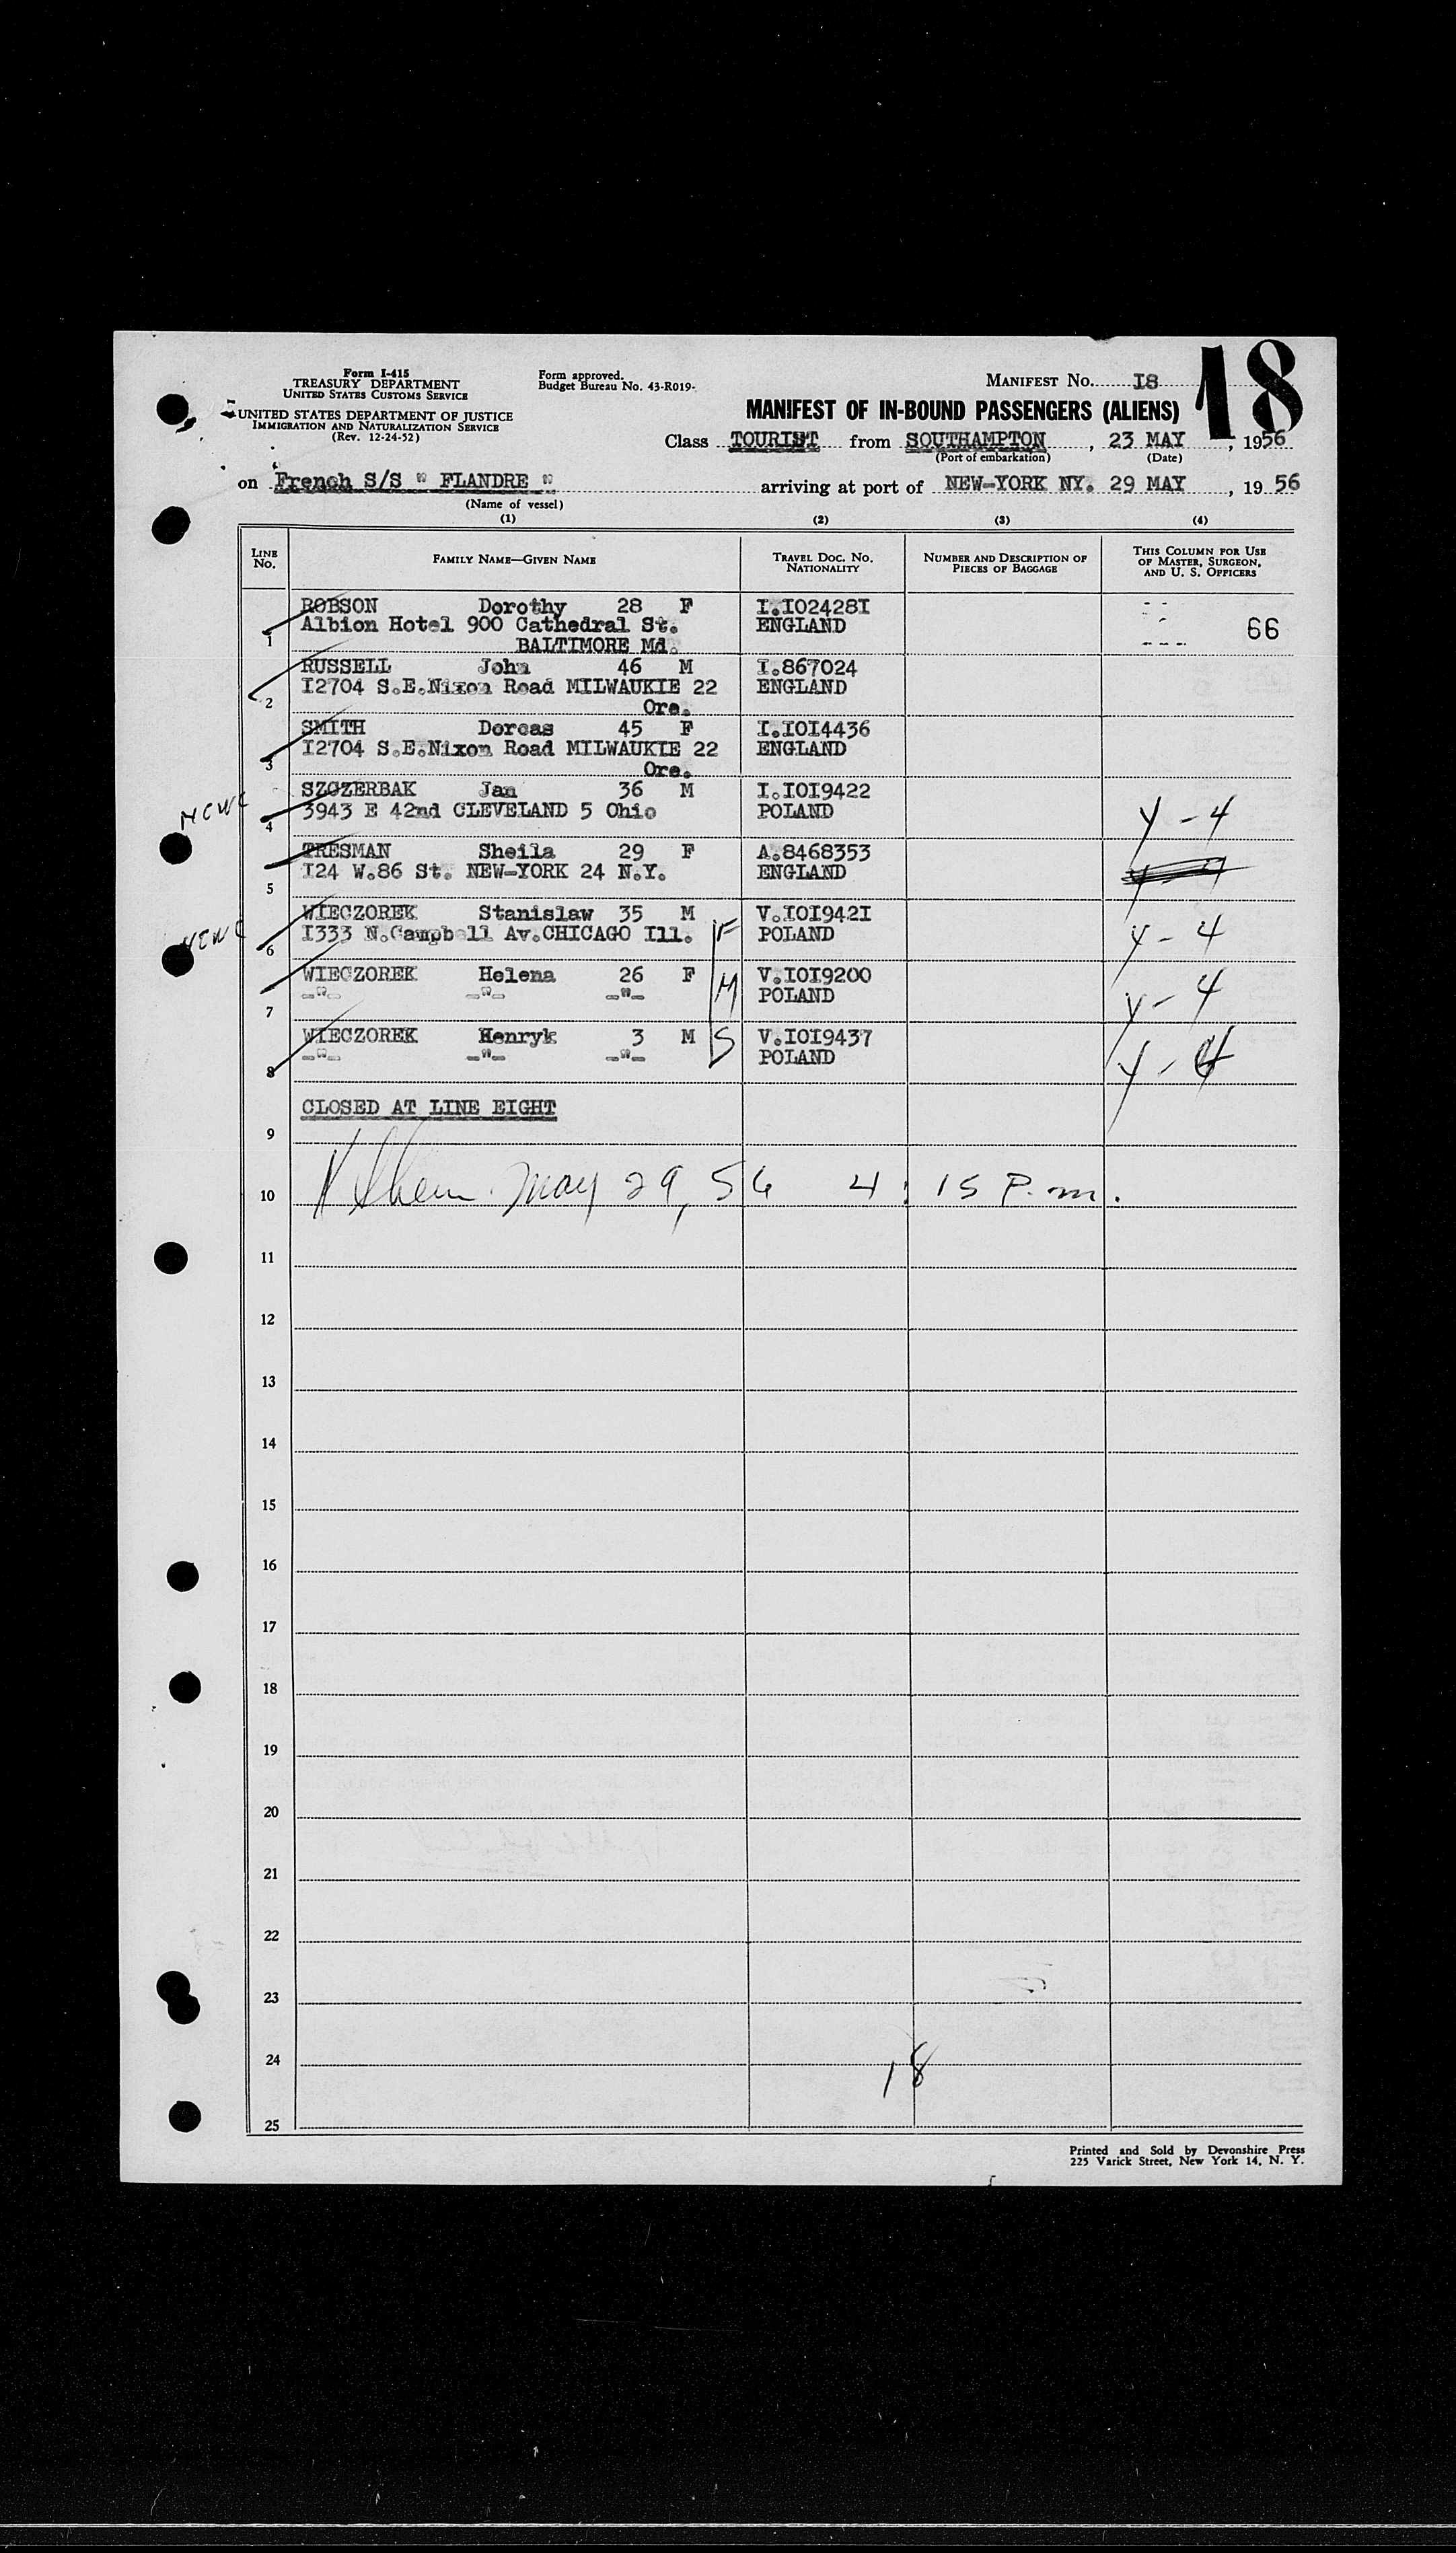 18
Form I-415
TREASURY DEPARTMENT
UNITED STATES CUSTOMS SERVICE
UNITED STATES DEPARTMENT OF JUSTICE
IMMIGRATION AND NATURALIZATION SERVICE
(Rev. 12-24-52)
Form approved.
Budget Bureau No. 43-R019-
MANIFEST NO. I8
MANIFEST OF IN-BOUND PASSENGERS (ALIENS)
Class TOURIST from SOUTHAMPTON, 23 MAY, 1956
(Port of embarkation) (Date)
on French S/S " FLANDRE " arriving at port of NEW-YORK NY. 29 MAY, 19 56
(Name of vessel)
(1) (2) (3) (4)
LINE NO. FAMILY NAME—GIVEN NAME TRAVEL DOC. NO. NATIONALITY NUMBER AND DESCRIPTION OF PIECES OF BAGGAGE THIS COLUMN FOR USE OF MASTER, SURGEON, AND U. S. OFFICERS
ROBSON Dorothy 28 F I.I02428I
1 Albion Hotel 900 Cathedral St. ENGLAND 66
BALTIMORE Md.
RUSSELL John 46 M I.867024
2 I2704 S.E.Nixon Road MILWAUKIE 22 ENGLAND
Ore.
SMITH Dorcas 45 F I.I0I4436
3 I2704 S.E.Nixon Road MILWAUKIE 22 ENGLAND
Ore.
SZCZERBAK Jan 36 M I.I0I9422
4 3943 E 42nd CLEVELAND 5 Ohio POLAND Y - 4
TRESMAN Sheila 29 F A.8468353
5 I24 W.86 St. NEW-YORK 24 N.Y. ENGLAND
WIECZOREK Stanislaw 35 M V.I0I942I
6 I333 N.Campbell Av.CHICAGO Ill. F POLAND Y - 4
WIECZOREK Helena 26 F V.I0I9200
7 -"- -"- -"- M POLAND Y - 4
WIECZOREK Henryk 3 M S V.I0I9437
8 -"- -"- -"- POLAND Y - 4
CLOSED AT LINE EIGHT
9
10 May 29, 56 4:15 P.m.
11
12
13
14
15
16
17
18
19
20
21
22
23
24 18
25
Printed and Sold by Devonshire Press
225 Varick Street, New York 14, N. Y.